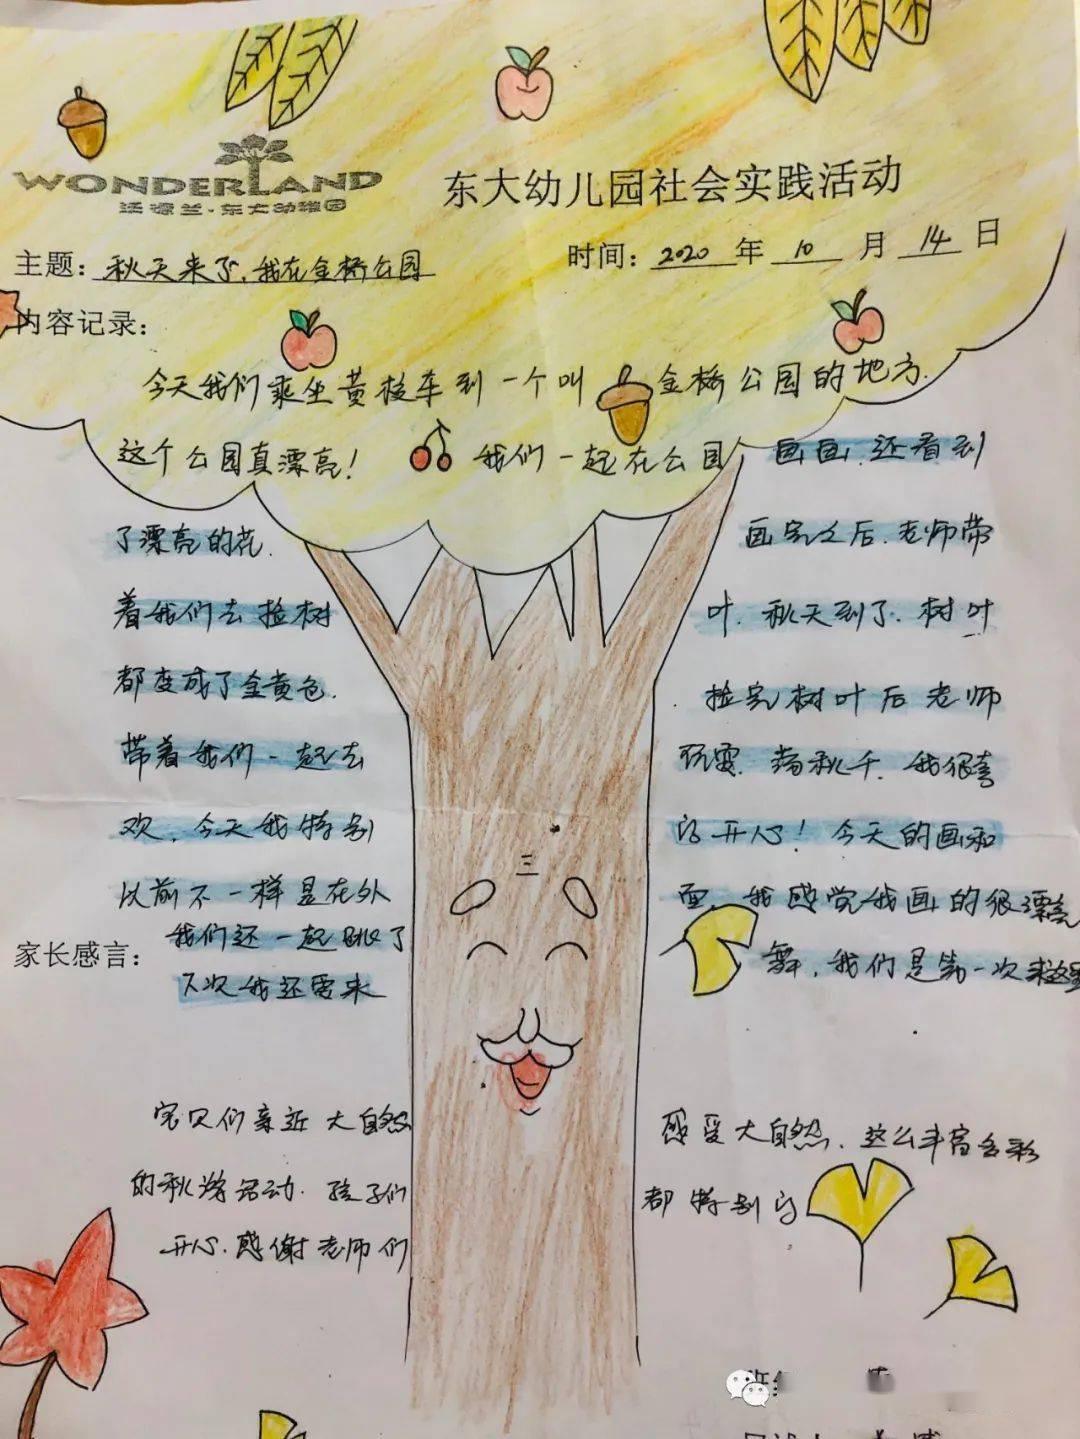 WONDERLAND
沃德兰·东大幼稚园
东大幼儿园社会实践活动
主题：秋天来了，我在金桥公园
时间：2020年10月14日
内容记录：
今天我们乘坐黄校车到一个叫金桥公园的地方.
这个公园真漂亮！我们一起在公园画画，还看到
了漂亮的花. 画完之后，老师带
着我们去捡树叶. 秋天到了，树叶
都变成了金黄色. 捡完树叶后老师
带着我们一起去玩耍. 荡秋千. 我很喜
欢，今天我特别的开心！今天的画和
以前不一样是在外面，我感觉我画的很漂亮
我们还一起跳了舞，我们是第一次来这里
下次我还要来
家长感言：
宝贝们亲近大自然 感受大自然，这么丰富多彩
的秋游活动. 孩子们都特别的
开心. 感谢老师们